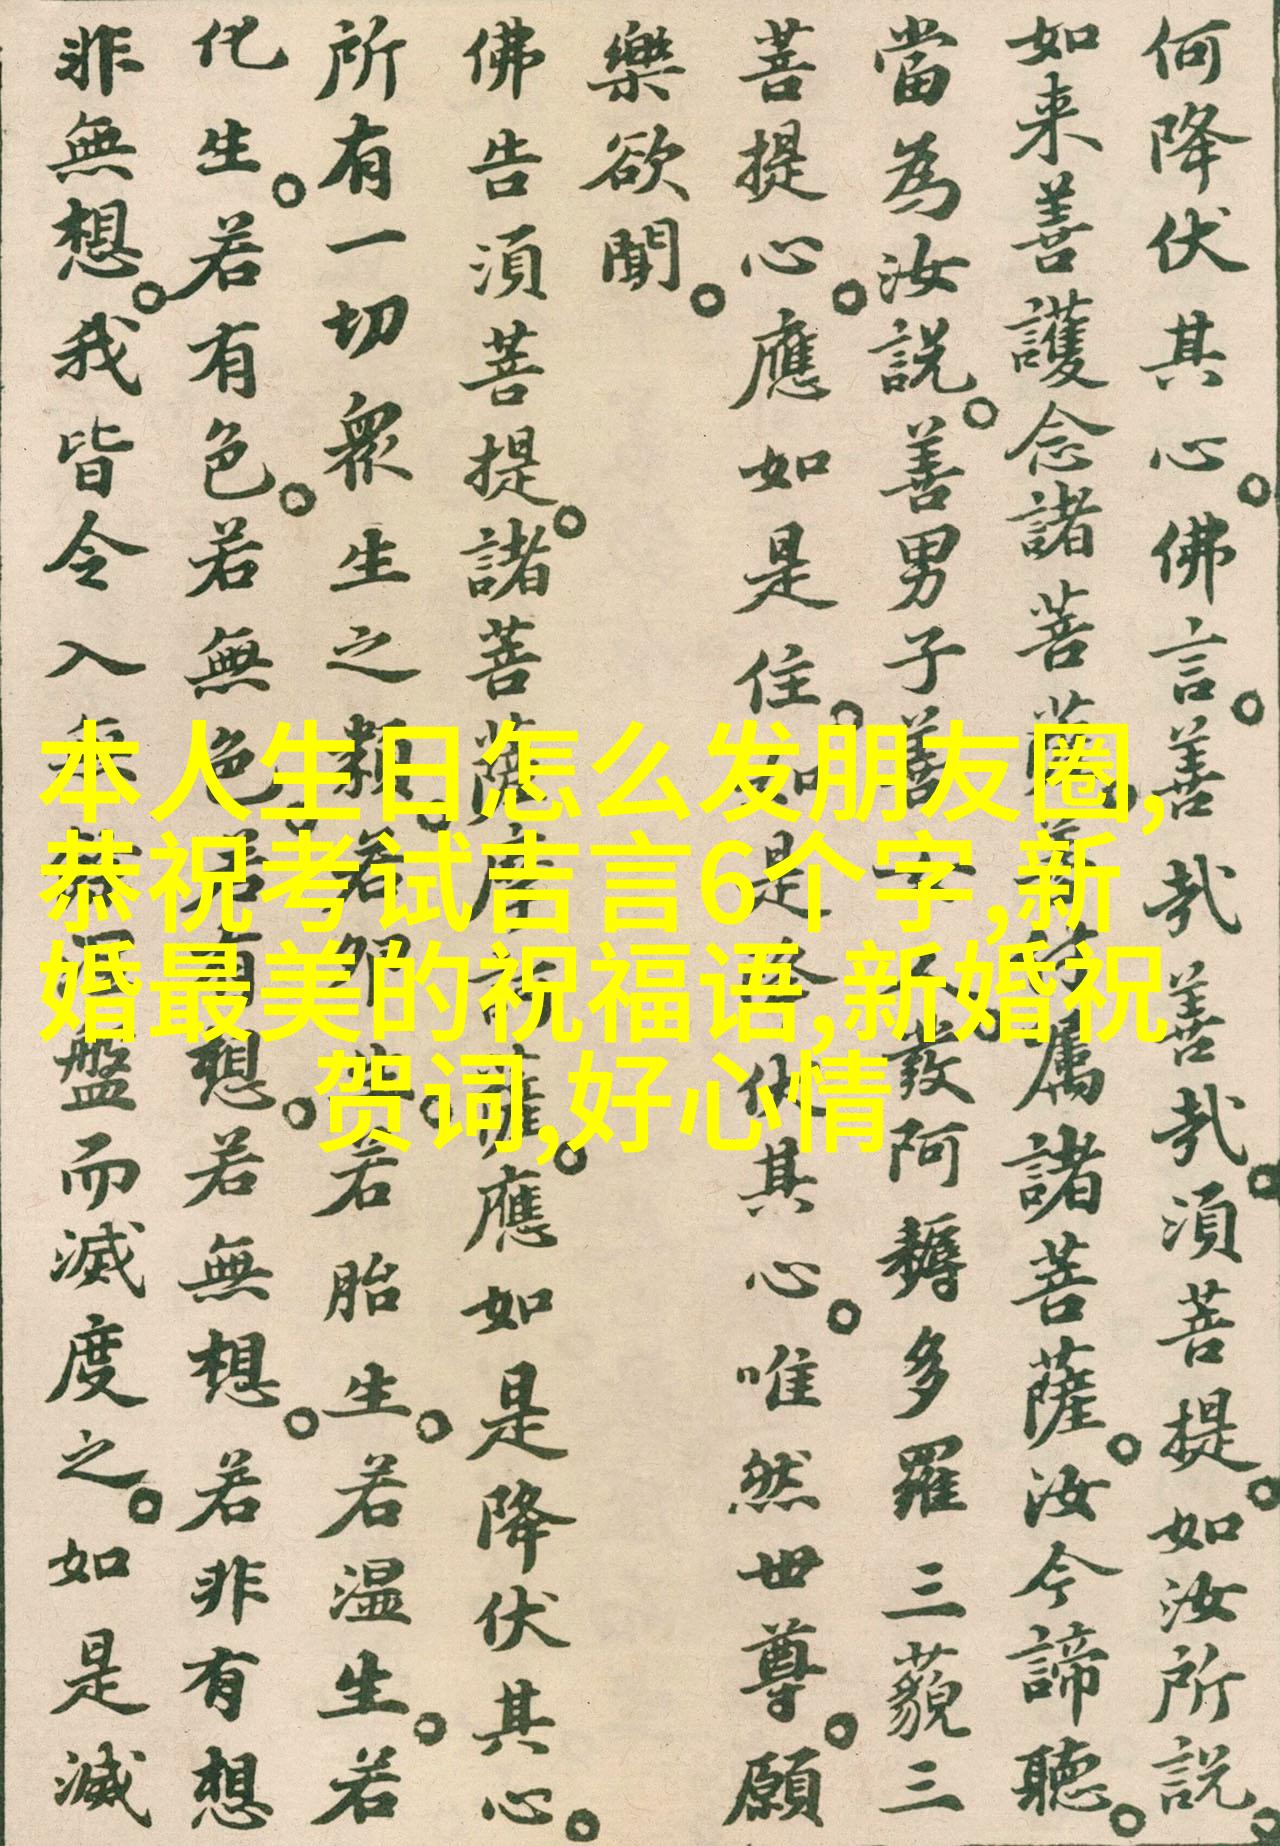 何降伏其心。佛言。善哉善哉。須菩提。如汝所說。
如来善護念諸菩薩。善付属諸菩薩。汝今諦聽。
當為汝說。善男子善女人發阿耨多羅三藐三
菩提心。應如是住。如是降伏其心。唯然世尊。願
樂欲聞。
佛告須菩提。諸菩薩摩訶薩。應如是降伏其心。
所有一切衆生之類。若卵生。若胎生。若温生。若
化生。若有色。若無色。若有想。若無想。若非有想
非無想。我皆令入無餘涅盤而滅度之。如是滅
本人生日怎么发朋友圈,
恭祝考试吉言6个字,新
婚最美的祝福语,新婚祝
贺词,好心情